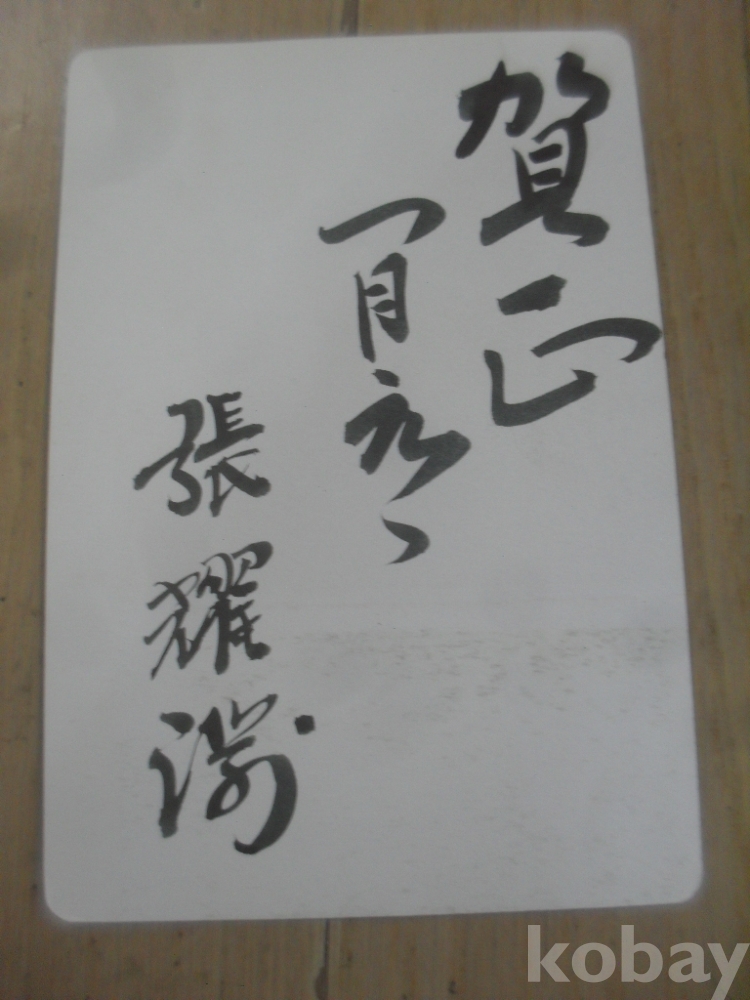 賀正
一月元
張耀
kobay